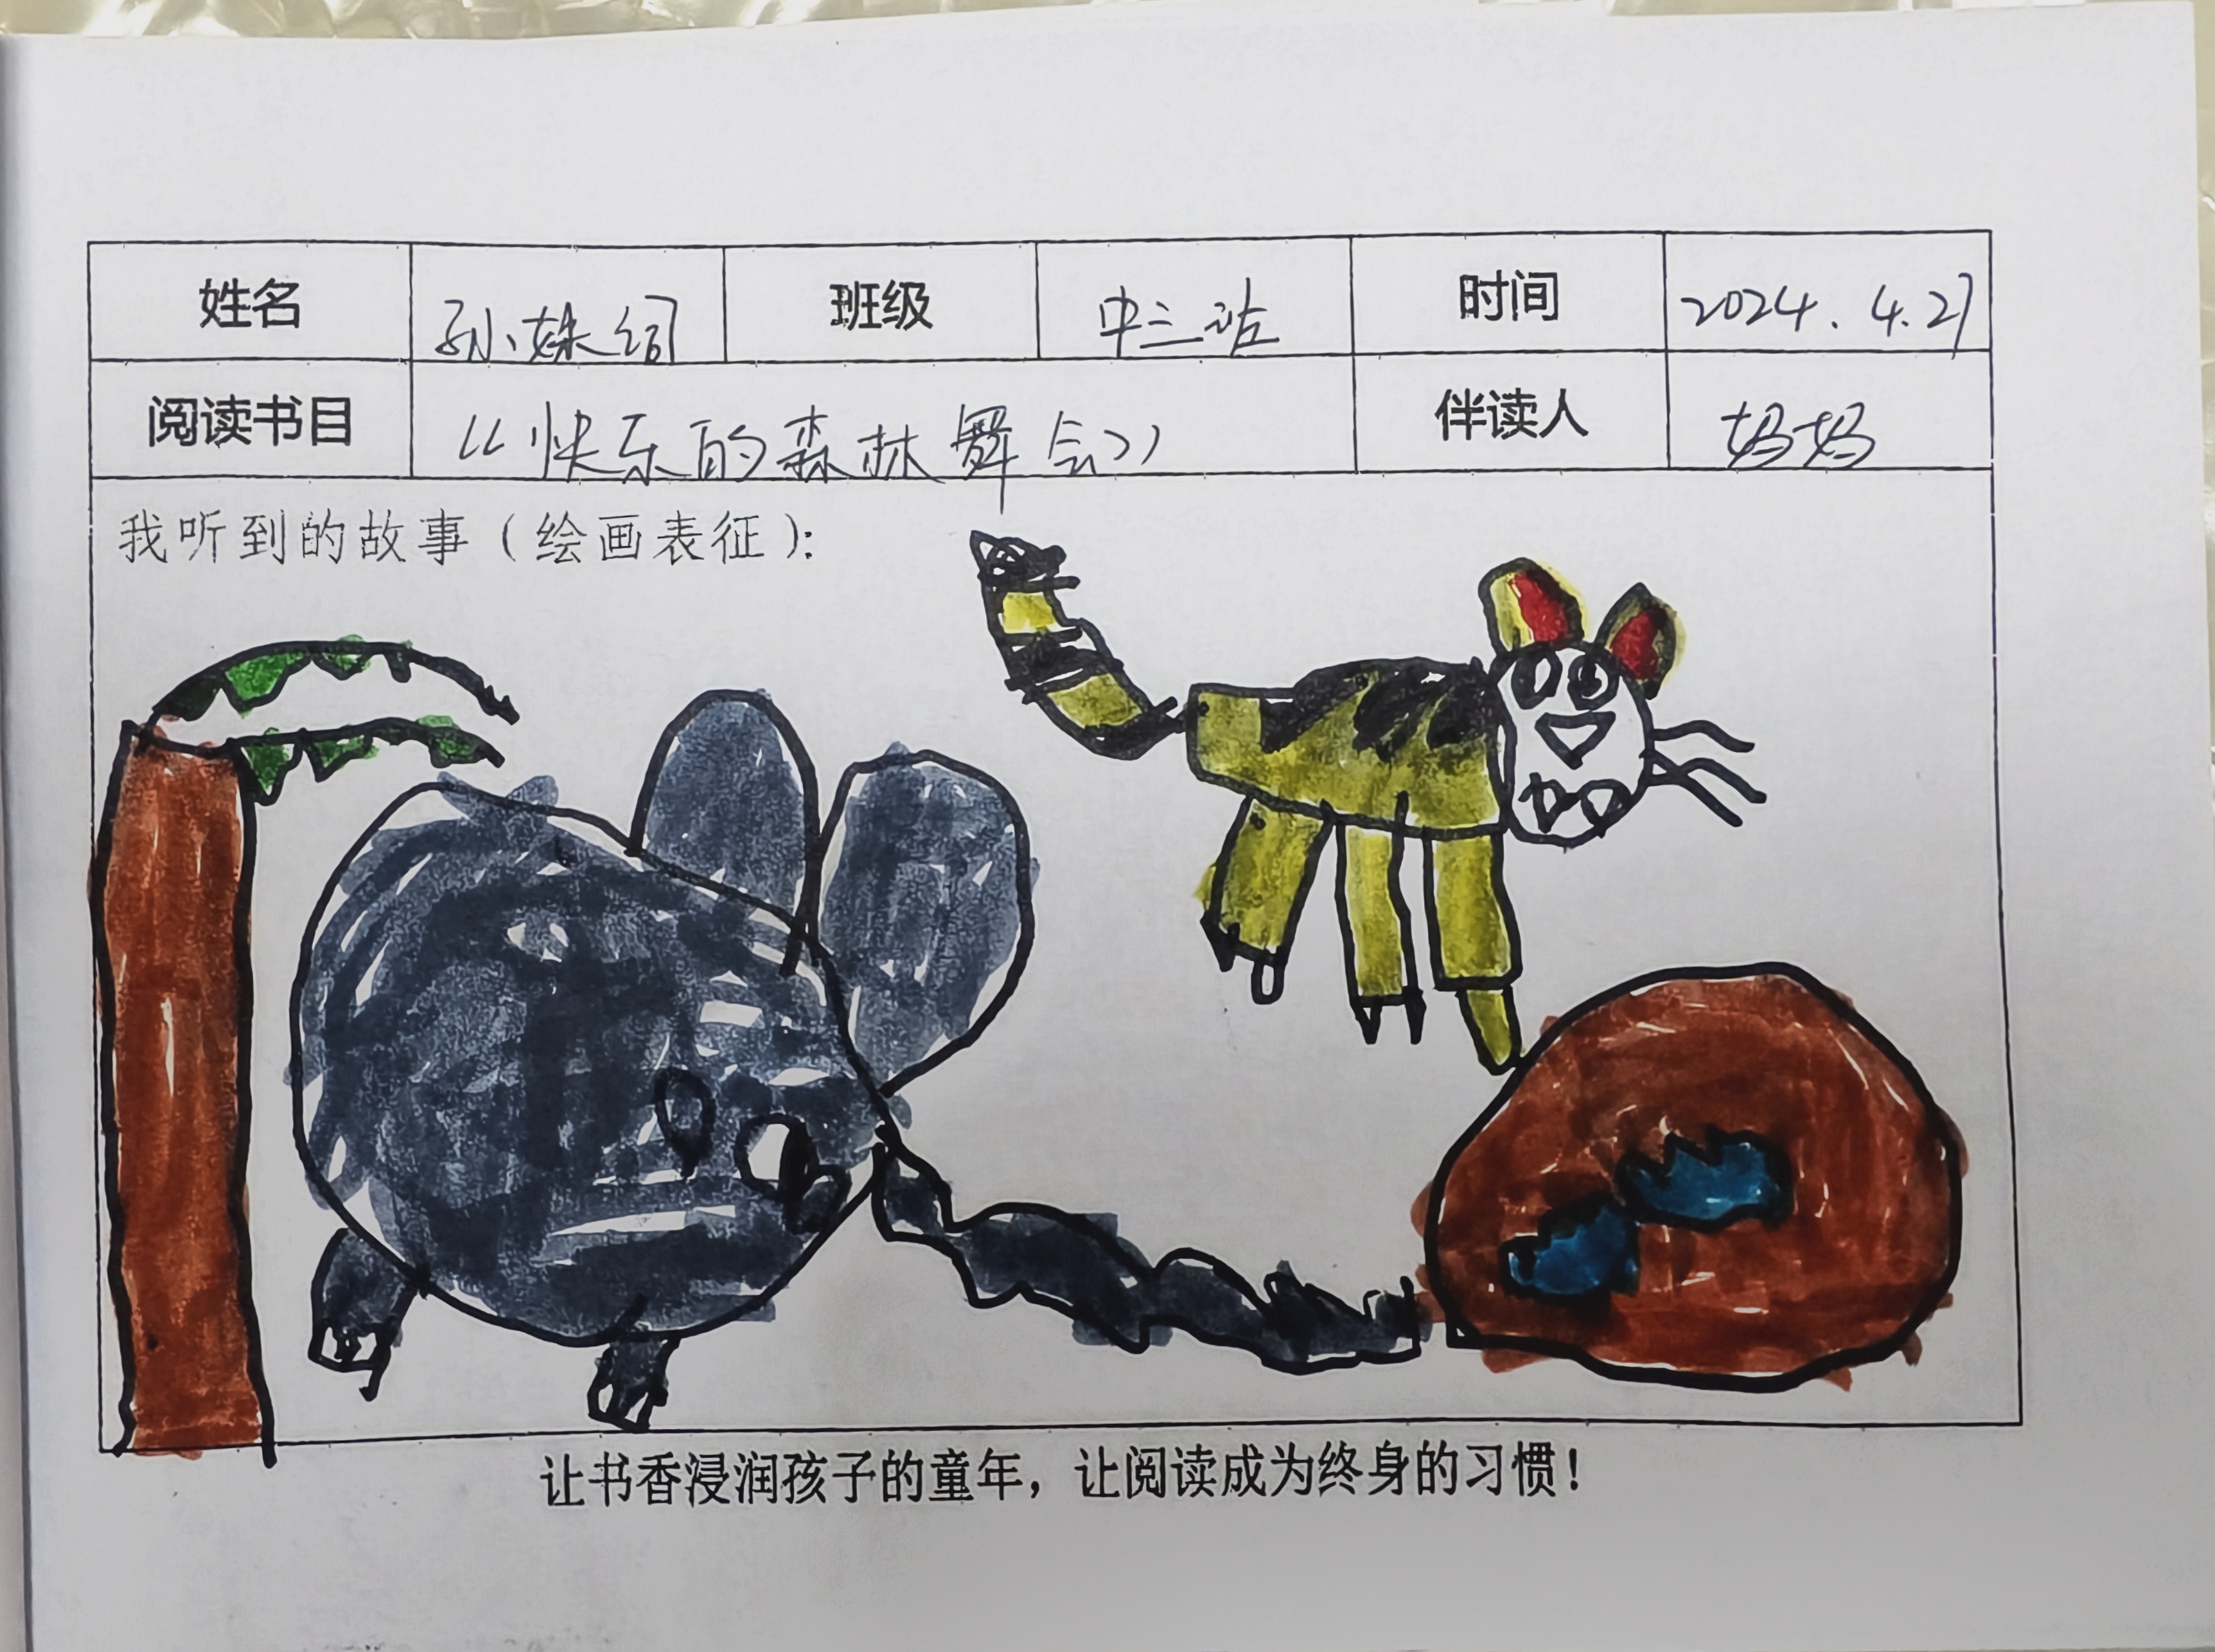 姓名 孙姝细 班级 中三班 时间 2024.4.27
阅读书目 《快乐的森林舞会》 伴读人 妈妈
我听到的故事（绘画表征）：
让书香浸润孩子的童年，让阅读成为终身的习惯！